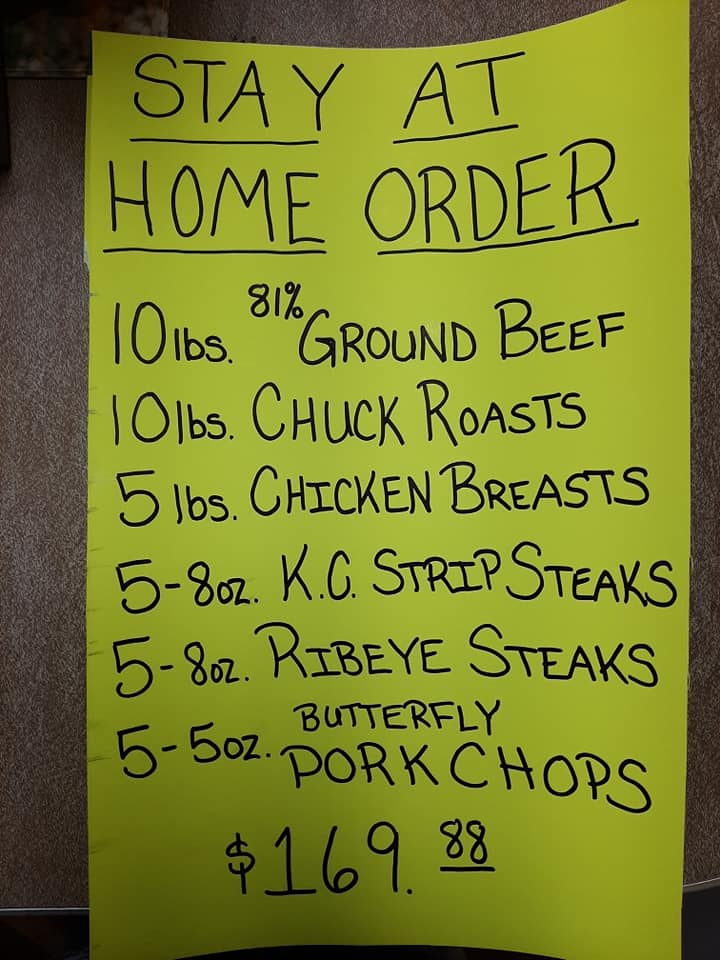 STAY AT
HOME ORDER
10 lbs. 81% GROUND BEEF
10 lbs. CHUCK ROASTS
5 lbs. CHICKEN BREASTS
5-8oz. K.C. STRIP STEAKS
5-8oz. RIBEYE STEAKS
5-5oz. BUTTERFLY
PORK CHOPS
$169.88